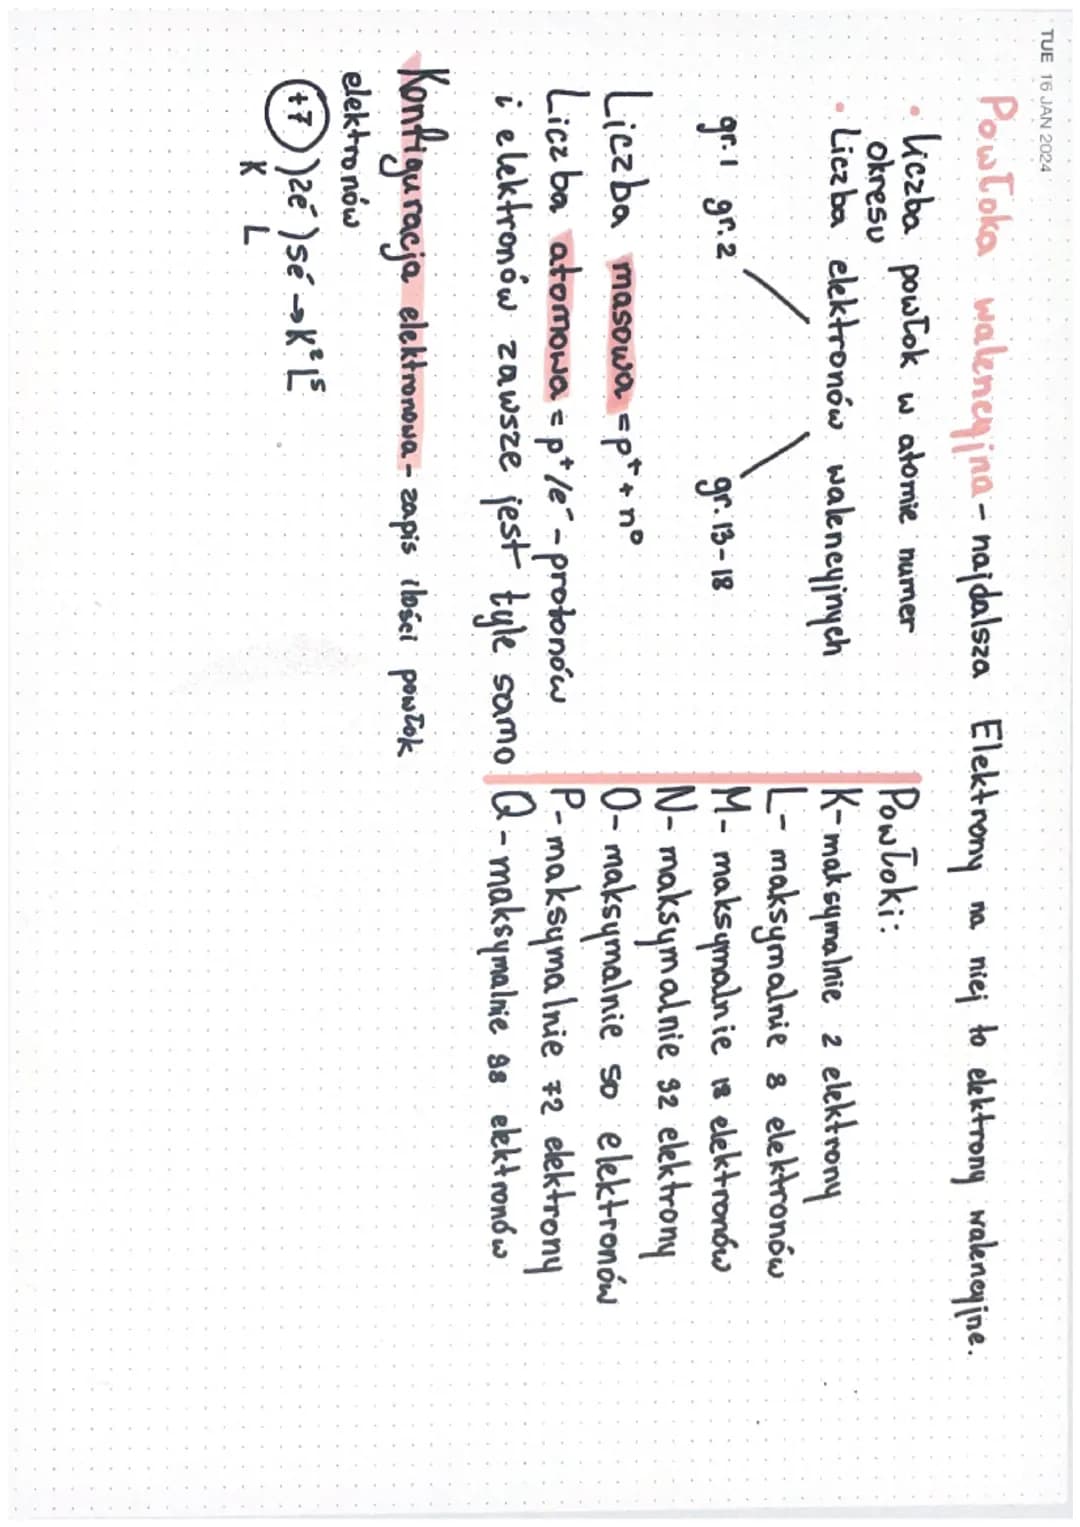 TUE 16 JAN 2024
Powłoka walencyjna - najdalsza Elektrony na niej to elektrony walencyjne.
• liczba powłok w atomie numer
okresu
• Liczba elektronów walencyjnych
gr.1 gr.2 gr.13-18
Liczba masowa = p⁺ + n⁰
Liczba atomowa = p⁺/e⁻ - protonów
i elektronów zawsze jest tyle samo
Powłoki:
K - maksymalnie 2 elektrony
L - maksymalnie 8 elektronów
M - maksymalnie 18 elektronów
N - maksymalnie 32 elektrony
O - maksymalnie 50 elektronów
P - maksymalnie 72 elektrony
Q - maksymalnie 98 elektronów
Konfiguracja elektronowa - zapis ilości powłok
elektronów
+7 )2e⁻ )5e⁻ → K² L⁵
K L